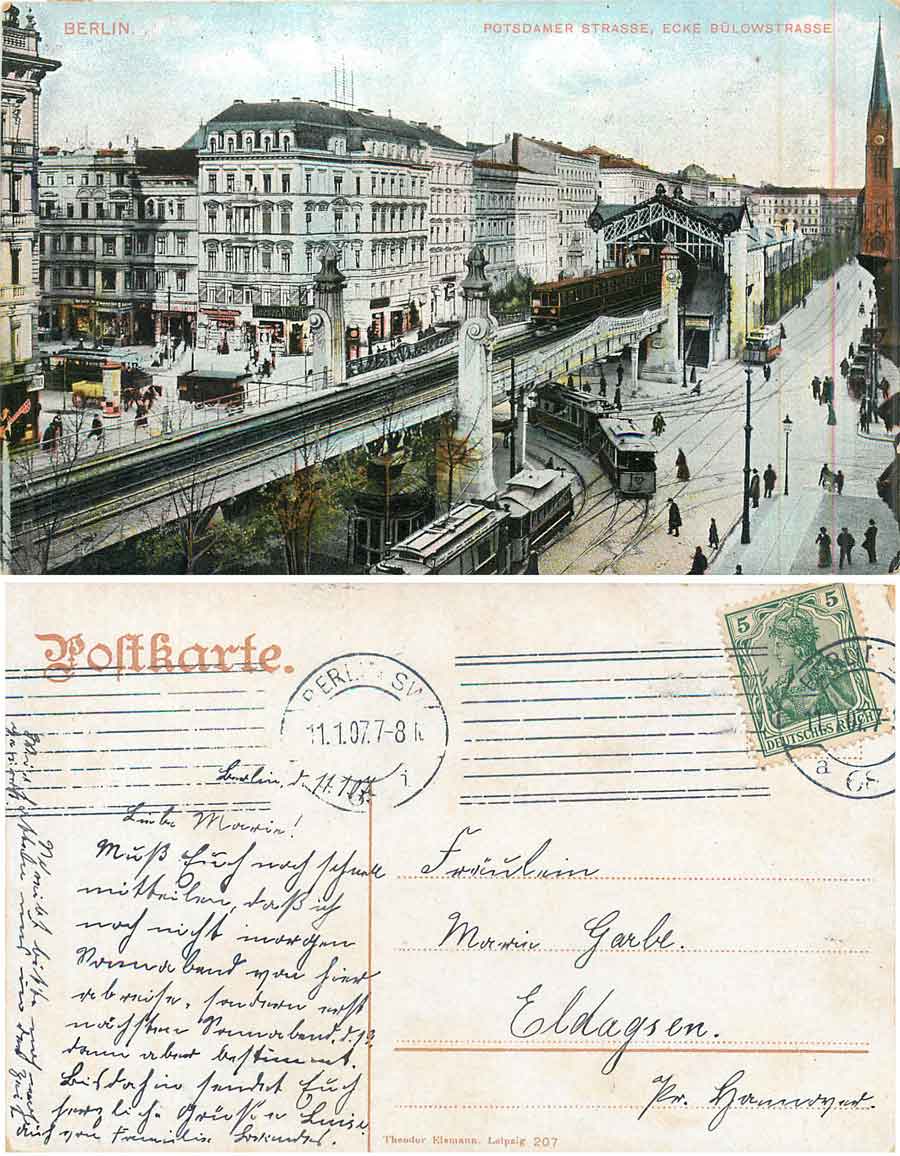 BERLIN.
POTSDAMER STRASSE, ECKE BÜLOWSTRASSE
Postkarte.
BERLIN SW
11.1.07. 7-8 N
i
5 5
DEUTSCHES REICH
BERLIN
a
Berlin, d. 11.1.07.
Liebe Marie!
Muß Euch noch schnell
mitteilen, daß ich
noch nicht morgen
Sonnabend von hier
abreise, sondern erst
nächsten Sonnabend, d. 19.
dann aber bestimmt.
Bisdahin sendet Euch
herzliche Grüße Luise
auch von Familie
Fräulein
Marie Garbe.
Eldagsen.
Pr. Hannover.
Theodor Eismann, Leipzig 207